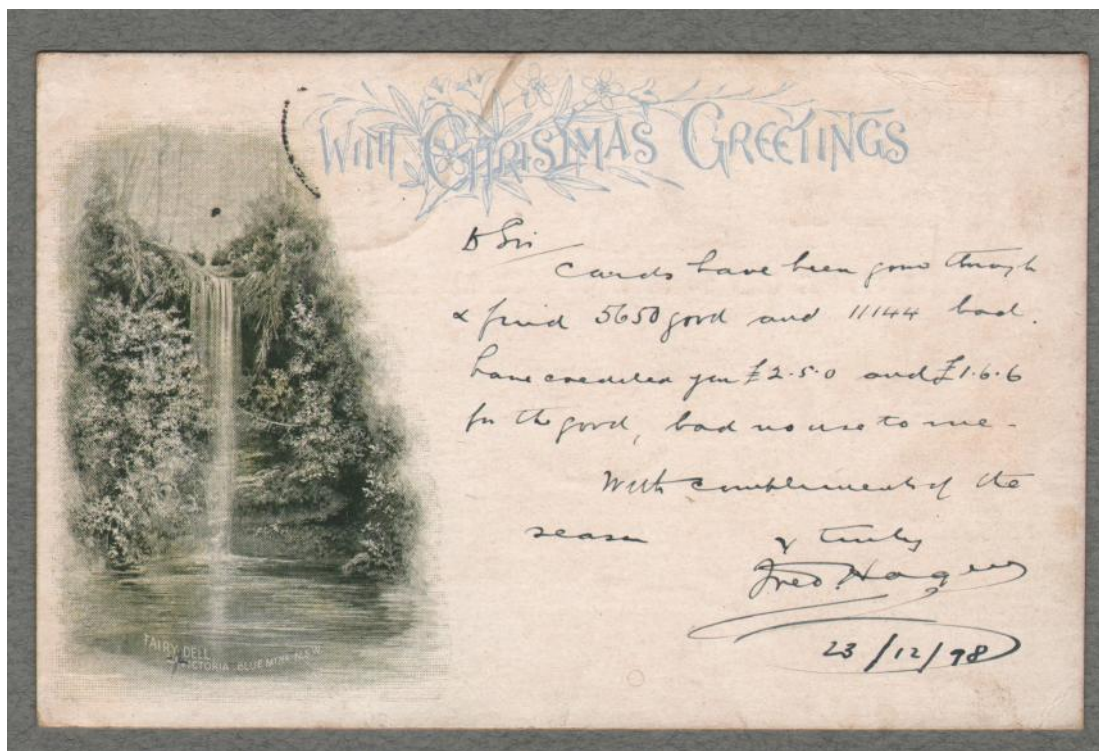 With Christmas Greetings
D Sir
Cards have been gone through
& find 5650 good and 11144 bad.
have credited you £2.5.0 and £1.6.6
for the good, bad no use to me -
With compliments of the
season
y truly
Fred Hagen
23/12/98
FAIRY DELL
VICTORIA BLUE MTNS N.S.W.